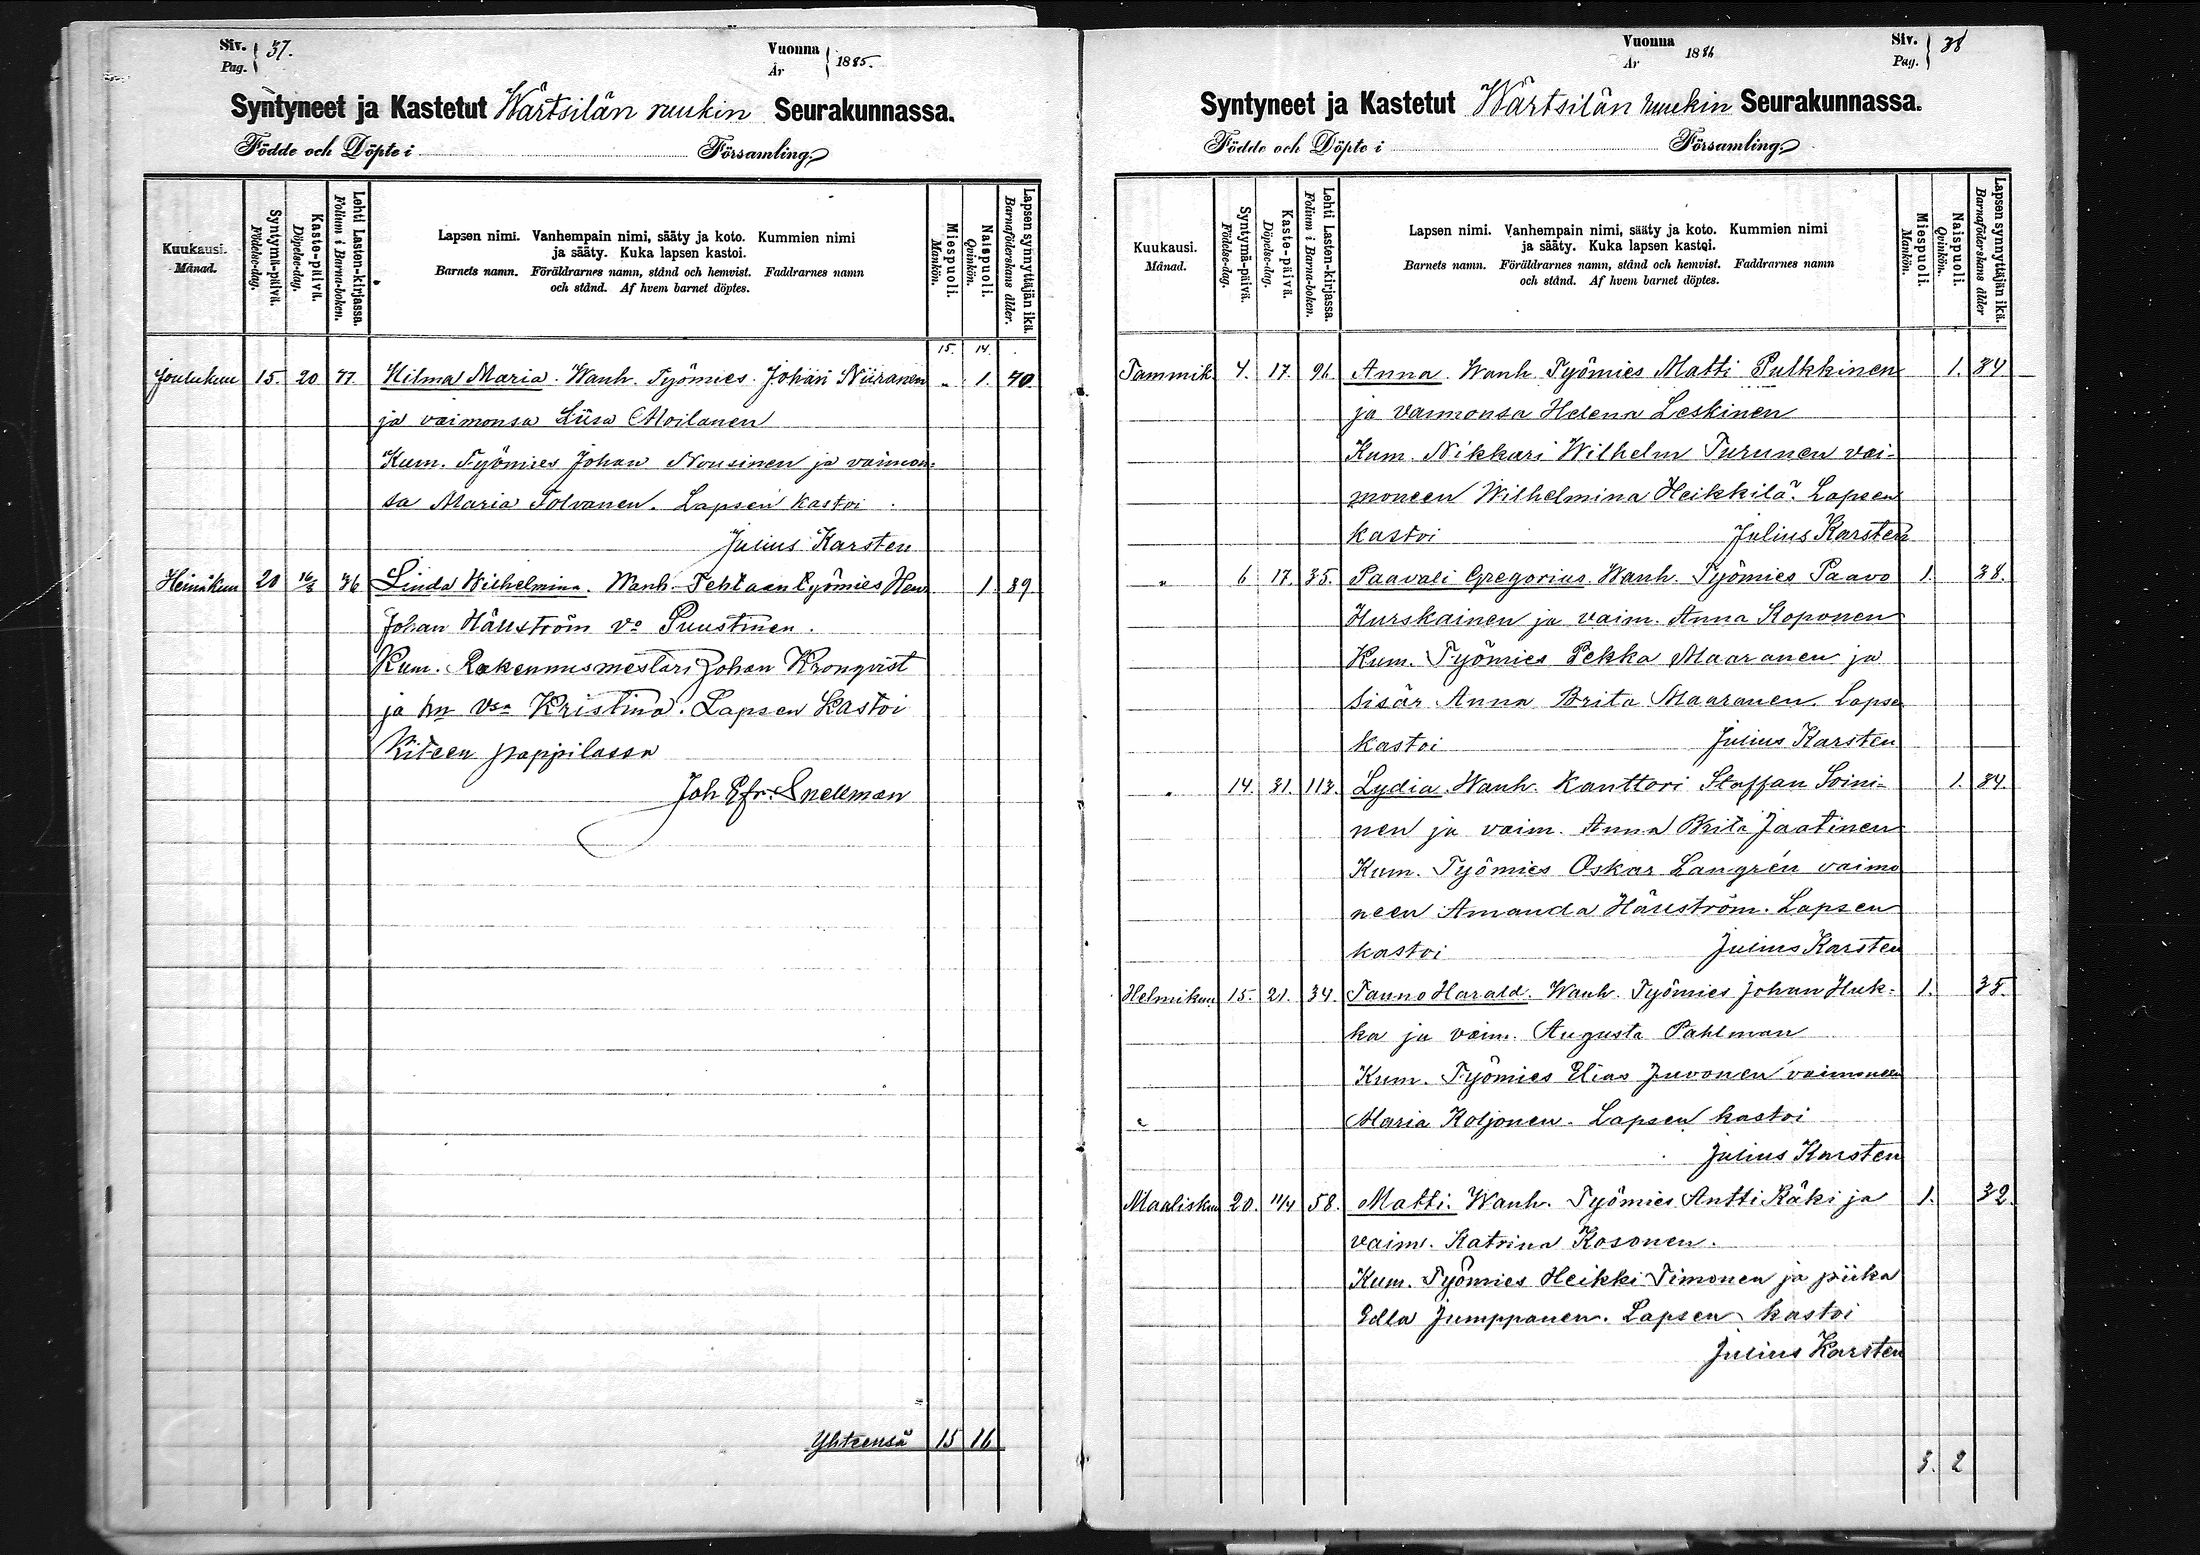 Siv. 37.
Pag.
Vuonna 1885.
År
Syntyneet ja Kastetut Wärtsilän ruukin Seurakunnassa.
Födde och Döpte i Församling.
Kuukausi.
Månad.
Syntymä-päivä.
Födelse-dag.
Kaste-päivä.
Döpelse-dag.
Lehti Lasten-kirjassa.
Folium i Barna-boken.
Lapsen nimi. Vanhempain nimi, sääty ja koto. Kummien nimi
ja sääty. Kuka lapsen kastoi.
Barnets namn. Föräldrarnes namn, stånd och hemvist. Faddrarnes namn
och stånd. Af hvem barnet döptes.
Miespuoli.
Mankön.
Naispuoli.
Qvinkön.
Lapsen synnyttäjän ikä.
Barnaföderskans ålder.
15. 14.
Joulukuu 15. 20 77 Hilma Maria. Wanh. Työmies Johan Niiranen „ 1. 40.
ja vaimonsa Liisa Moilanen
Kum. Työmies Johan Nousinen ja vaimon-
sa Maria Tolvanen. Lapsen kastoi
Julius Karsten
Heinäkuu 20 16/8 36 Linda Wilhelmina. Wanh. Tehtaan työmies Hen 1. 39
Johan Hällström vo Puustinen.
Kum. Rakennusmestari Johan Kronqvist
ja hn vsa Kristina. Lapsen kastoi
Kiteen pappilassa
Joh. Efr. Snellman
Yhteensä 15 16
Vuonna 1886
År
Siv. 38
Pag.
Syntyneet ja Kastetut Wärtsilän ruukin Seurakunnassa.
Födde och Döpte i Församling.
Kuukausi.
Månad.
Syntymä-päivä.
Födelse-dag.
Kaste-päivä.
Döpelse-dag.
Lehti Lasten-kirjassa.
Folium i Barna-boken.
Lapsen nimi. Vanhempain nimi, sääty ja koto. Kummien nimi
ja sääty. Kuka lapsen kastoi.
Barnets namn. Föräldrarnes namn, stånd och hemvist. Faddrarnes namn
och stånd. Af hvem barnet döptes.
Miespuoli.
Mankön.
Naispuoli.
Qvinkön.
Lapsen synnyttäjän ikä.
Barnaföderskans ålder
Tammik. 4. 17. 96. Anna. Wanh. Työmies Matti Pulkkinen 1. 34.
ja vaimonsa Helena Leskinen
Kum. Nikkari Wilhelm Turunen vai-
moneen Wilhelmina Heikkilä. Lapsen
kastoi Julius Karsten
„ 6 17. 35. Paavali Gregorius. Wanh. Työmies Paavo 1. 38.
Hurskainen ja vaim. Anna Koponen
Kum. Työmies Pekka Maaranen ja
sisar Anna Brita Maaranen. Lapsen
kastoi Julius Karsten
„ 14. 31. 113. Lydia. Wanh. Kanttori Staffan Soini- 1. 34.
nen ja vaim. Anna Brita Jaatinen
Kum. Työmies Oskar Langrén vaimo
neen Amanda Hällström. Lapsen
kastoi Julius Karsten
Helmikuu 15. 21. 34. Tauno Harald. Wanh. Työmies Johan Huk- 1. 35.
ka ja vaim. Augusta Pahlman
Kum. Työmies Elias Juvonen vaimoneen
Maria Koljonen. Lapsen kastoi
Julius Karsten
Maaliskuu 20. 11/4 58. Matti. Wanh. Työmies Antti Käki ja 1. 32.
vaim. Katrina Kosonen.
Kum. Työmies Heikki Timonen ja piika
Edla Jumppanen. Lapsen kastoi
Julius Karsten
3. 2